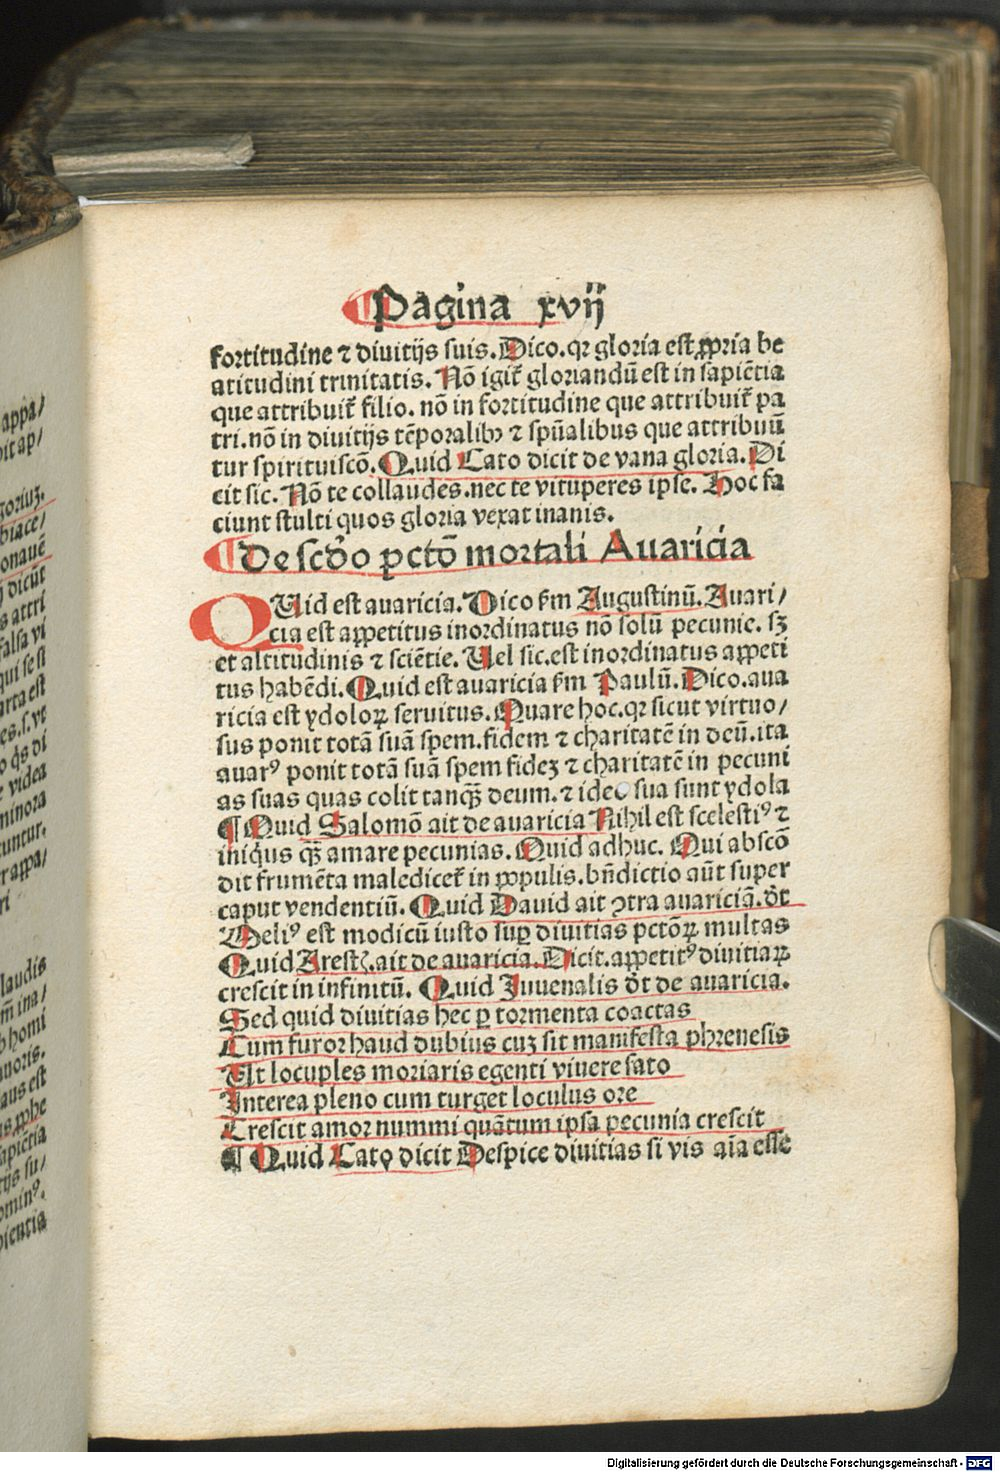 Pagina xvij
fortitudine ⁊ diuitijs suis. Dico. qꝛ gloria est ꝓpria be
atitudini trinitatis. Nō igit̃ gloriandū est in sapiētia
que attribuit̃ filio. nō in fortitudine que attribuit̃ pa
tri. nō in diuitijs tēporalibꝫ ⁊ spūalibus que attribuū
tur spirituiscō. Quid Cato dicit de vana gloria. Di
cit sic. Nō te collaudes. nec te vituperes ipse. Hoc fa
ciunt stulti quos gloria vexat inanis.
¶ De scd̄o pctō mortali Auaricia
QUid est auaricia. Dico ẜm Augustinū. Auari/
cia est appetitus inordinatus nō solū pecunie. sꝫ
et altitudinis ⁊ sciētie. Uel sic. est inordinatus appeti
tus habēdi. Quid est auaricia ẜm Paulū. Dico. aua
ricia est ydoloꝝ seruitus. Quare hoc. qꝛ sicut virtuo/
sus ponit totā suā spem. fidem ⁊ charitatē in deū. ita
auarꝰ ponit totā suā spem fideꝫ ⁊ charitatē in pecuni
as suas quas colit tanqꝫ̄ deum. ⁊ ideo sua sunt ydola
¶ Quid Salomō ait de auaricia Nihil est scelestiꝰ ⁊
iniqͥus qꝫ̄ amare pecunias. Quid adhuc. Qui abscō
dit frumēta maledicet̃ in ꝓpulis. bn̄dictio aūt super
caput vendentiū. Quid Dauid ait ꝯtra auariciā. dт̄
Meliꝰ est modicū iusto suꝑ diuitias pctōꝝ multas
Quid Arestꝭ. ait de auaricia. Dicit. appetitꝰ diuitiaꝝ
crescit in infinitū. Quid Juuenalis dт̄ de auaricia.
Sed quid diuitias hec ꝑ tormenta coactas
Cum furor haud dubius cuꝫ sit manifesta phrenesis
Ut locuples moriaris egenti viuere fato
Interea pleno cum turget loculus ore
Crescit amor nummi quātum ipsa pecunia crescit
¶ Quid Cato dicit Despice diuitias si vis aīa esse
appa/
it ap/
goriuꝫ.
biace/
onauē
dicūt
s attri
falsa vi
qui se si
arta est
es. s. vt
di
videa
minora
untur.
rappa/
ri
laudis
m̄ ina/
homi
uoris.
aus est
sapiētia
tijs su/
ominꝰ.
pientia
Digitalisierung gefördert durch die Deutsche Forschungsgemeinschaft - DFG